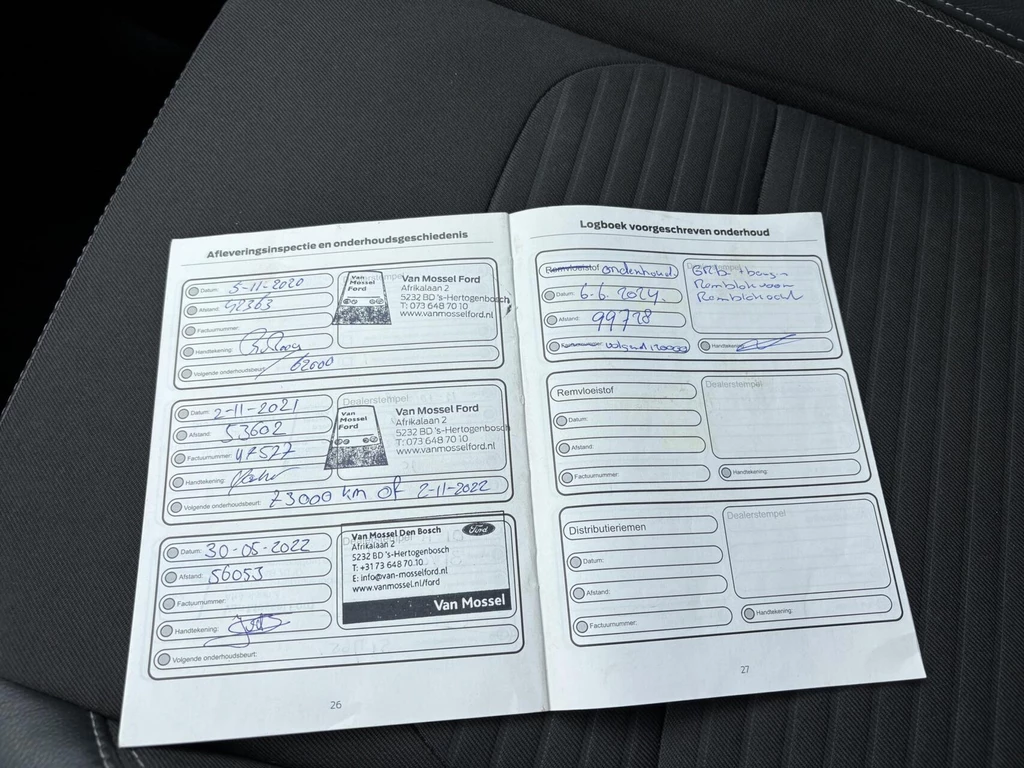 Afleveringsinspectie en onderhoudsgeschiedenis
Datum: 5-11-2020
Afstand: 42363
Factuurnummer:
Handtekening:
Volgende onderhoudsbeurt: 62000
Dealerstempel
Van Mossel Ford
Van Mossel Ford
Afrikalaan 2
5232 BD 's-Hertogenbosch
T: 073 648 70 10
www.vanmosselford.nl
Datum: 2-11-2021
Afstand: 53602
Factuurnummer: 47527
Handtekening:
Volgende onderhoudsbeurt: 73000 km of 2-11-2022
Dealerstempel
Van Mossel Ford
Van Mossel Ford
Afrikalaan 2
5232 BD 's-Hertogenbosch
T: 073 648 70 10
www.vanmosselford.nl
Datum: 30-05-2022
Afstand: 56053
Factuurnummer:
Handtekening:
Volgende onderhoudsbeurt:
Van Mossel Den Bosch
Ford
Afrikalaan 2
5232 BD 's-Hertogenbosch
T: +31 73 648 70 10
E: info@van-mosselford.nl
www.vanmossel.nl/ford
Van Mossel
26
Logboek voorgeschreven onderhoud
Remvloeistof onderhoud
Datum: 6.6.2024.
Afstand: 99728
volgend 120000
Handtekening:
Remblok voor
Remblok acht
Remvloeistof
Datum:
Afstand:
Factuurnummer:
Dealerstempel
Handtekening:
Distributieriemen
Datum:
Afstand:
Factuurnummer:
Dealerstempel
Handtekening:
27